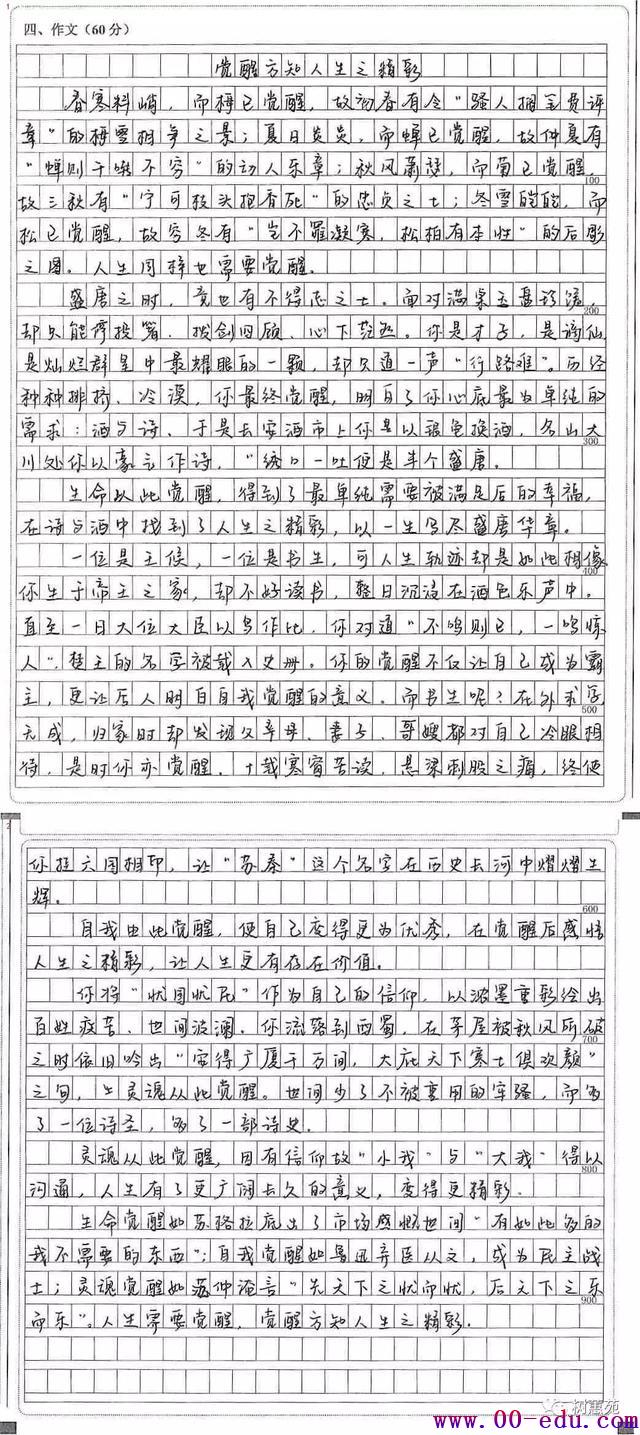 1
四、作文(60分)
觉醒方知人生之精彩
春寒料峭,而梅已觉醒,故初春有令“骚人搁笔费评
章”的梅雪相争之景;夏日炎炎,而蝉已觉醒,故仲夏有
“蝉则千啭不穷”的动人乐章;秋风萧瑟,而菊已觉醒
100
故三秋有“宁可枝头抱香死”的忠贞之士;冬雪皑皑,而
松已觉醒,故穷冬有“岂不罹凝寒,松柏有本性”的后彫
之图。人生同样也需要觉醒。
盛唐之时,竟也有不得志之士。面对满桌玉盘珍馐,
200
却只能停投箸、拔剑四顾、心下茫然。你是才子,是谪仙
是灿烂群星中最耀眼的一颗,却只道一声“行路难”。历经
种种排挤、冷漠,你最终觉醒,明白了你心底最为单纯的
需求:酒与诗、于是长安酒市上你是以银龟换酒,名山大
300
川处你以豪言作诗,“绣口一吐便是半个盛唐。
生命以此觉醒,得到了最单纯需要被满足后的幸福,
在诗与酒中找到了人生之精彩,以一生写尽盛唐华章。
一位是王侯,一位是书生,可人生轨迹却是如此相像
400
你生于帝王之家,却不好读书,整日沉浸在酒色乐声中。
直至一日大位大臣以鸟作比,你对道“不鸣则已,一鸣惊
人”,楚王的名字被载入史册。你的觉醒不仅让自己成为霸
主,更让后人明白自我觉醒的意义。而书生呢?在外求学
500
无成,归家时却发现父亲母、妻子、哥嫂都对自己冷眼相
待,是时你亦觉醒。十载寒窗苦读,悬梁刺股之痛,终使
2
你挂六国相印,让“苏秦”这个名字在历史长河中熠熠生
辉。
600
自我由此觉醒,使自己变得更为优秀,在觉醒后感悟
人生之精彩,让人生更有存在价值。
你将“忧国忧民”作为自己的信仰,以浓墨重彩绘出
百姓疾苦、世间波澜。你流落到西蜀,在茅屋被秋风所破
700
之时依旧吟出“安得广厦千万间,大庇天下寒士俱欢颜”
之句,灵魂从此觉醒。世间少了不被重用的牢骚,而多
了一位诗圣,多了一部诗史。
灵魂从此觉醒,因有信仰故“小我”与“大我”得以
800
沟通,人生有了更广阔长久的意义,变得更精彩。
生命觉醒如苏格拉底出了市场感慨世间“有如此多的
我不需要的东西”;自我觉醒如鲁迅弃医从文,成为民主战
士;灵魂觉醒如范仲淹言“先天下之忧而忧,后天下之乐
900
而乐”。人生需要觉醒,觉醒方知人生之精彩。
树蕙苑
www.00-edu.com